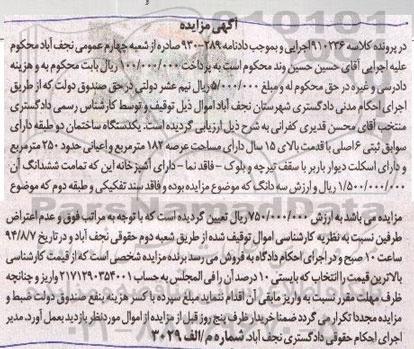 آگهی مزایده
در پرونده کلاسه ۹۱۰۲۳۶ اجرایی و بموجب دادنامه ۲۸۹-۹۳۰ صادره از شعبه چهارم عمومی نجف آباد محکوم
علیه اجرایی آقای حسین حسین وند محکوم است به پرداخت ۱۰۰/۰۰۰/۰۰۰ ریال بابت محکوم به و هزینه
دادرسی و غیره در حق محکوم له و مبلغ ۵/۰۰۰/۰۰۰ ریال نیم عشر دولتی در حق صندوق دولت که از طریق
اجرای احکام مدنی دادگستری شهرستان نجف آباد اموال ذیل توقیف و توسط کارشناس رسمی دادگستری
منتخب آقای محسن قدیری کفرانی به شرح ذیل ارزیابی گردیده است. یکدستگاه ساختمان دو طبقه دارای
سوابق ثبتی ۶ اصلی با قدمت بالای ۱۵ سال دارای مساحت عرصه ۱۸۲ مترمربع و اعیانی حدود ۲۵۰ مترمربع
و دارای اسکلت دیوار باربر با سقف تیرچه و بلوک - فاقد نما - دارای آشپزخانه این که تمامت ششدانگ آن
۱/۵۰۰/۰۰۰/۰۰۰ ریال و ارزش سه دانگ که موضوع مزایده بوده و فاقد سند تفکیکی و طبقه دوم که موضوع
مزایده می باشد به ارزش ۷۵۰/۰۰۰/۰۰۰ ریال تعیین گردیده است که با توجه به مراتب فوق و عدم اعتراض
طرفین نسبت به نظریه کارشناسی اموال توقیف شده از طریق شعبه دوم حقوقی نجف آباد و در تاریخ ۹۴/۸/۷
ساعت ۱۰ صبح و در اجرای احکام دادگاه به فروش می رسد برنده مزایده شخصی است که از قیمت کارشناسی
بالاترین قیمت را انتخاب که بایستی ۱۰ درصد آن را فی المجلس به حساب ۲۱۷۱۲۹۰۳۵۴۰۰۱ واریز و چنانچه
ظرف مهلت مقرر نسبت به واریز مابقی آن اقدام ننماید مبلغ سپرده با کسر هزینه بنفع صندوق دولت ضبط و
مزایده مجددا تکرار می گردد ضمنا خریدار ظرف پنج روز قبل از مزایده از اموال مورد نظر بازدید بعمل آورد. مدیر
اجرای احکام حقوقی دادگستری نجف آباد. شماره م/الف ۳۰۲۹